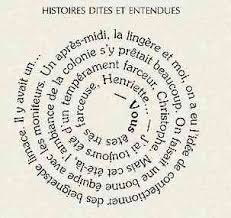 HISTOIRES DITES ET ENTENDUES
— Vous êtes très farceuse, Henriette... — J'ai toujours été d'un tempérament farceur, Christophe. Mais cet été-là, l'ambiance de la colonie s'y prêtait beaucoup. On faisait une bonne équipe avec les moniteurs. Un après-midi, la lingère et moi, on a eu l'idée de confectionner des beignets de limace. Il y avait un...